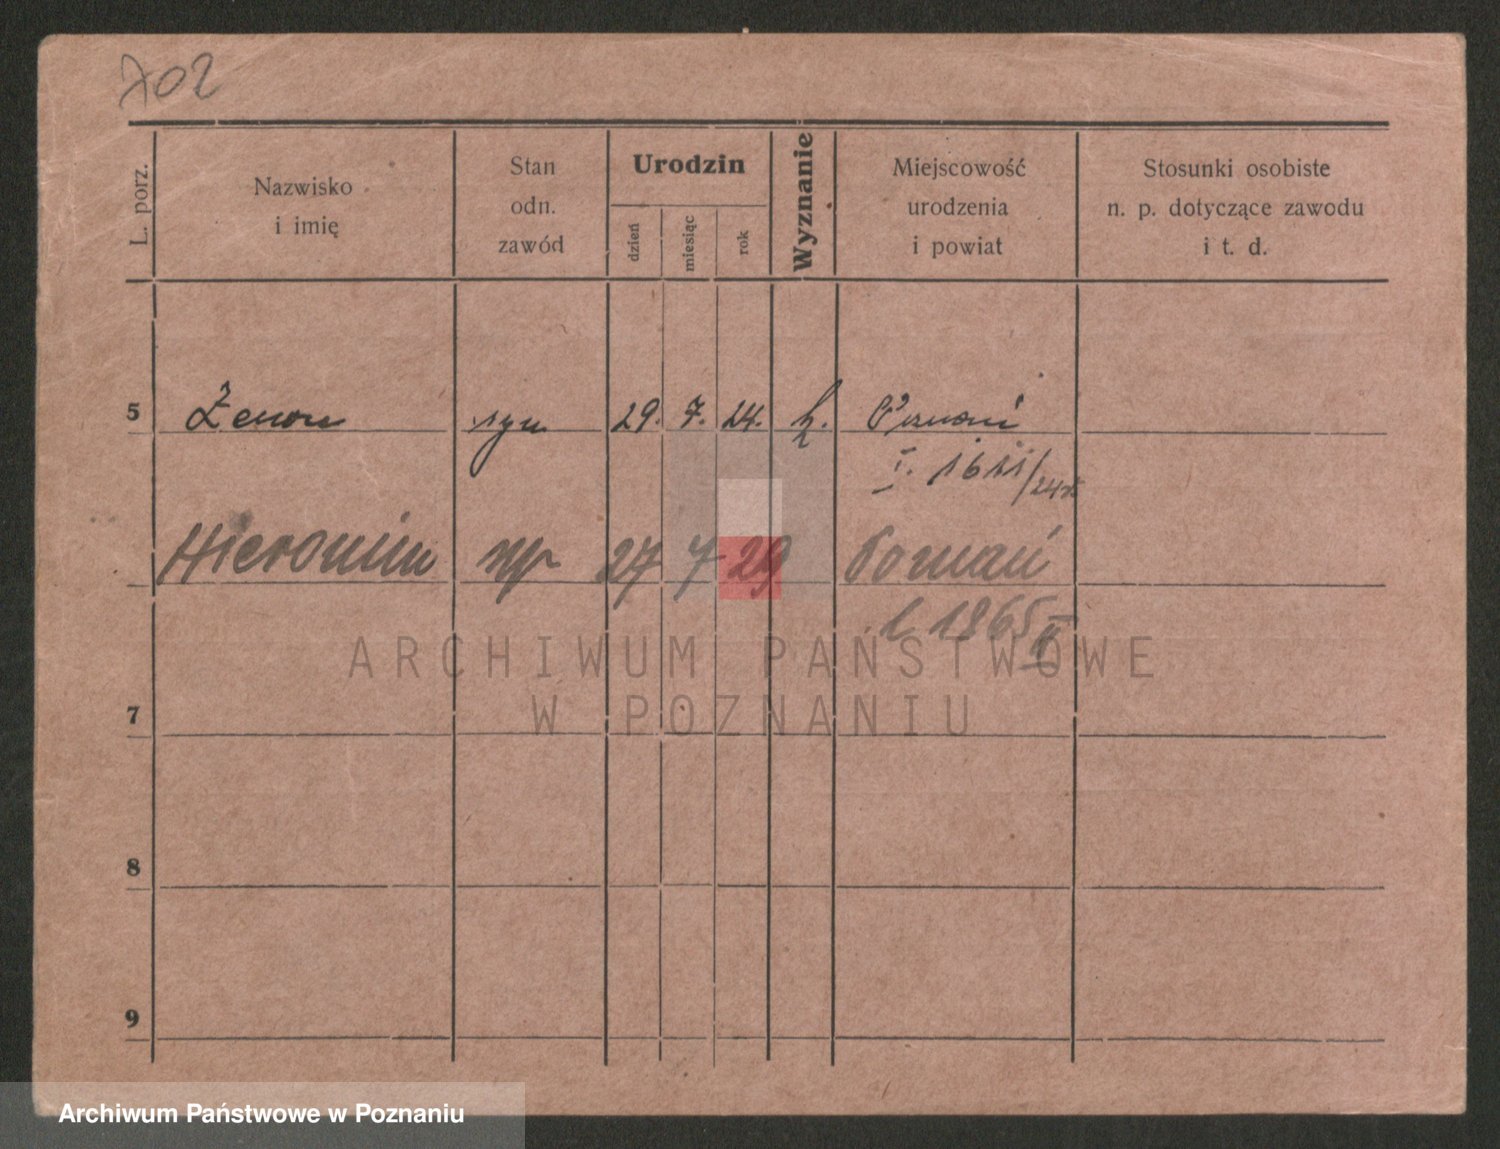 702
L. porz.
Nazwisko
i imię
Stan
odn.
zawód
Urodzin
dzień
miesiąc
rok
Wyznanie
Miejscowość
urodzenia
i powiat
Stosunki osobiste
n. p. dotyczące zawodu
i t. d.
5 Zenon syn 29. 7. 24. k. Poznań
I. 1611/24
Hieronim syn 27 7 29 Poznań
1865
ARCHIWUM PAŃSTWOWE
W POZNANIU
7
8
9
Archiwum Państwowe w Poznaniu